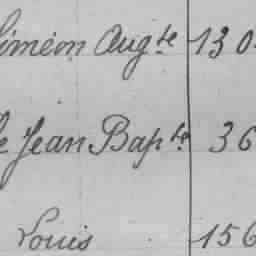 Siméon Aug.te 130
Jean Bap.te 36
Louis 156